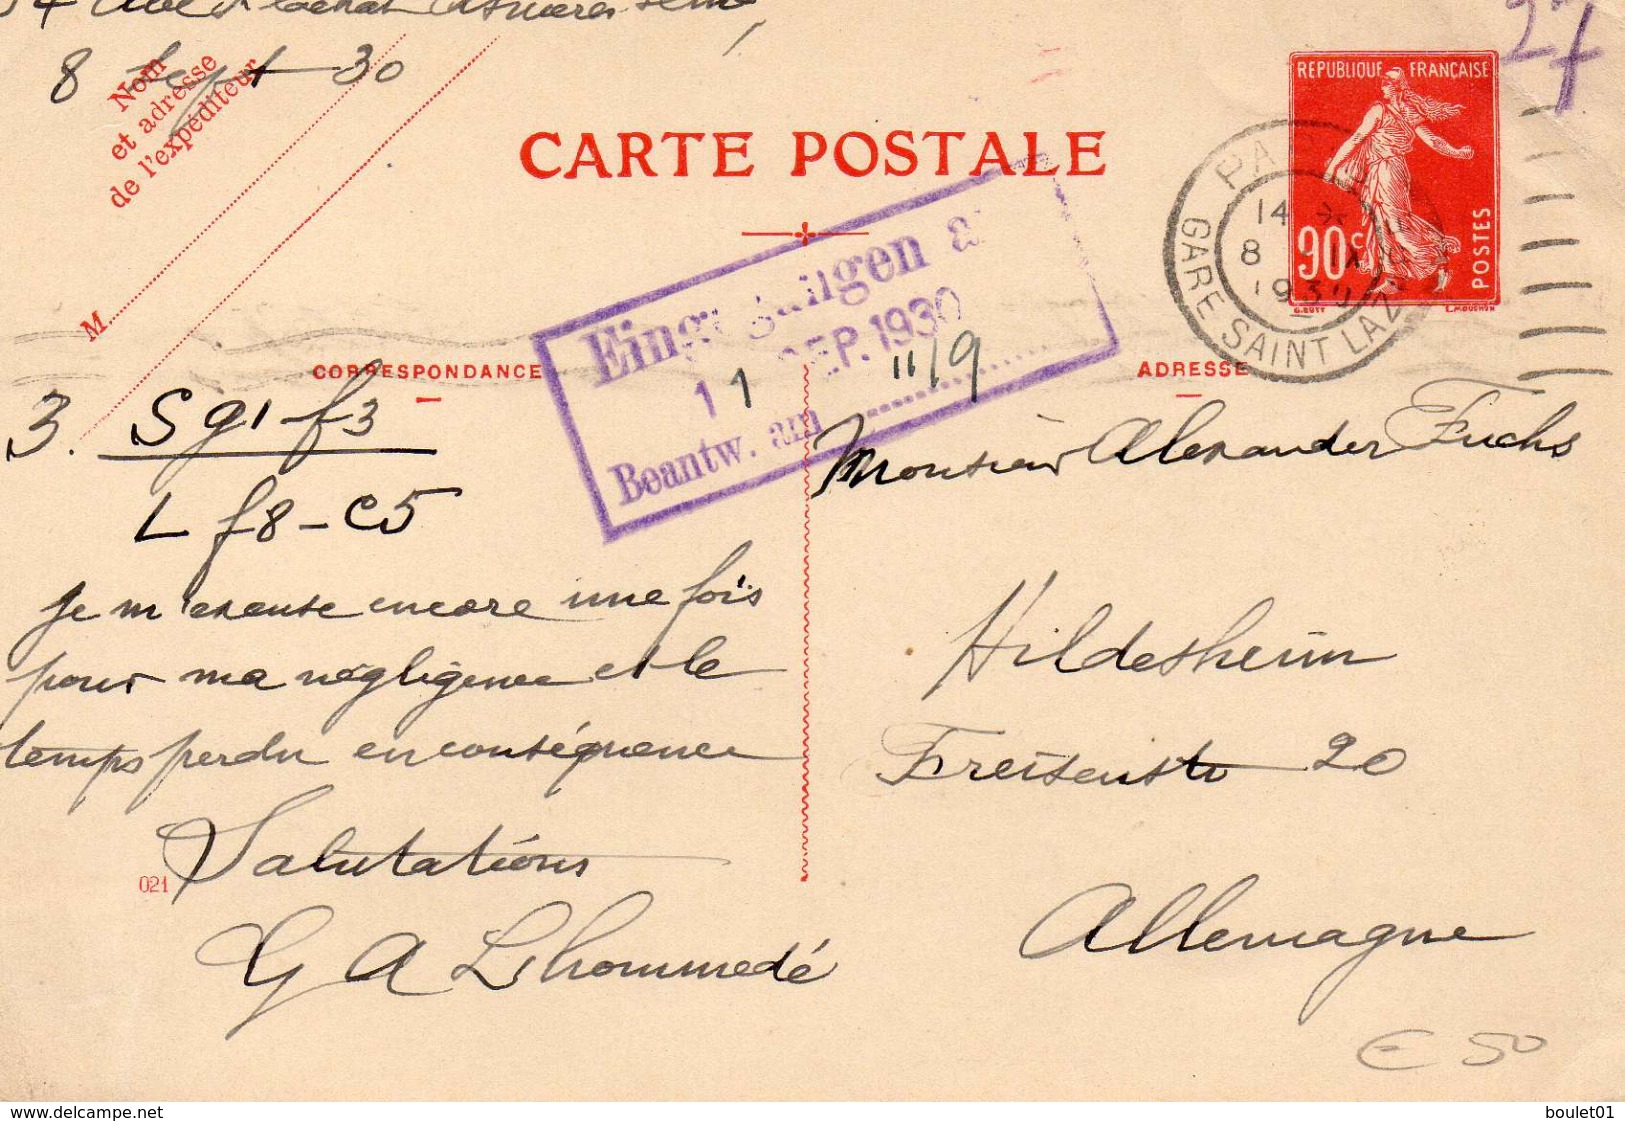 8 Sept 30
Nom
et adresse
de l'expéditeur
M
CARTE POSTALE
REPUBLIQUE FRANÇAISE
90c
POSTES
14
8 IX
1930
GARE SAINT LAZ
SEP. 1930
11/9
Beantw. am
CORRESPONDANCE
ADRESSE
3. Sg1-f3
L f8-c5
je m'excuse encore une fois
pour ma négligence et le
temps perdu en conséquence
Salutations
G A Lhommedé
021
Monsieur Alexander Fuchs
Hildesheim
20
Allemagne
E 50
www.delcampe.net
boulet01